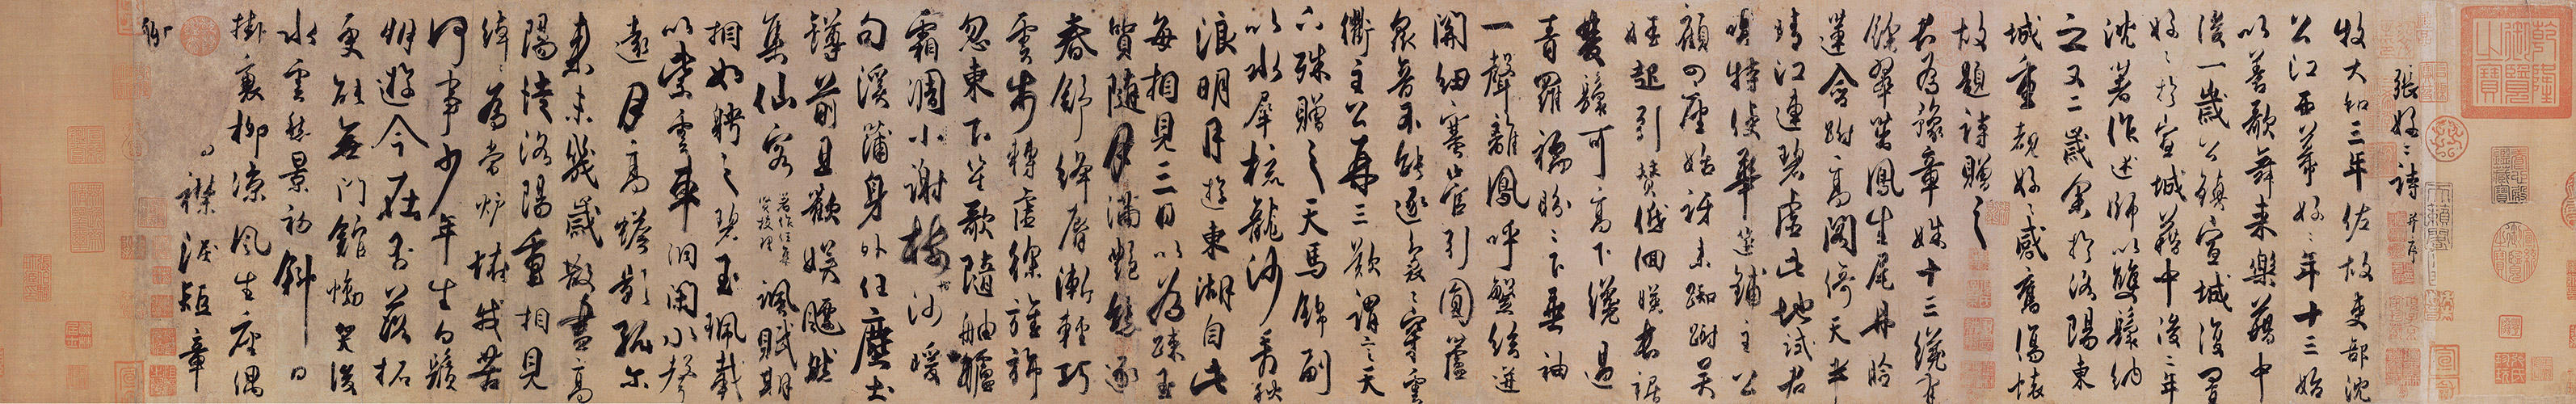 張好好詩并序
牧大和三年佐故吏部沈
公江西幕好好年十三始
以善歌舞来樂籍中
後一歲公鎮宣城復置
好好於宣城籍中後二年
沈著作述師以雙鬟納
之又二歲余於洛陽東
城重覩好好感舊傷懷
故題詩贈之
君為豫章姝十三纔有
餘翠茁鳳生尾丹臉
蓮含跗高閣倚天半
晴江連碧虛此地試君
唱特使華筵鋪主公
顧四座始訝来踟躕吳
娃起引贊低佪映長裾
雙鬟可高下纔過
青羅襦盼盼下垂袖
一聲離鳳呼繁絃迸
關紐塞管引圓蘆
衆音不能逐裊裊穿雲
衢主公再三歎謂言天
下殊贈之天馬錦副
以水犀梳龍沙看秋
浪明月遊東湖自此
每相見三日以為踈玉
質隨月滿艷態逐
春舒絳脣漸輕巧
雲步轉虛徐旌旆
忽東下笙歌隨舳艫
霜凋小謝樓沙暖
句溪蒲身外任塵土
罇前且歡娛飄然
集仙客著作任集賢校理諷賦期
相如聘之碧玉珮載
以紫雲車洞閉水聲
遠月高蟾影孤尔
来未幾歲散盡高
陽徒洛陽重相見
綽綽為當爐怪我苦
何事少年生白鬚
朋遊今在否落拓
更能無門舘慟哭後
水雲愁景初斜日
掛衰柳涼風生座隅
襟淚短章